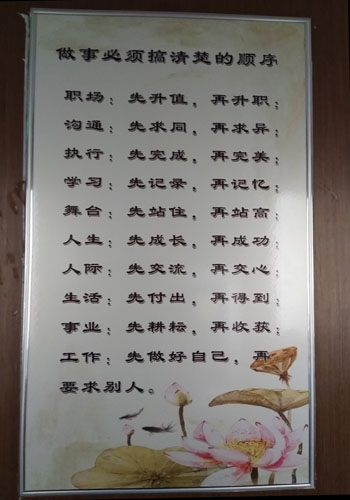 做事必须搞清楚的顺序
职场：先升值，再升职；
沟通：先求同，再求异；
执行：先完成，再完美；
学习：先记录，再记忆；
舞台：先站住，再站高；
人生：先成长，再成功；
人际：先交流，再交心；
生活：先付出，再得到；
事业：先耕耘，再收获；
工作：先做好自己，再
要求别人。